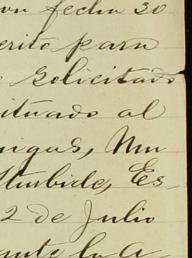 con fecha 30
erito para
solicitado
ituado al
nigas, Mu
Iturbide, Es-
2 de Julio
ante la A-